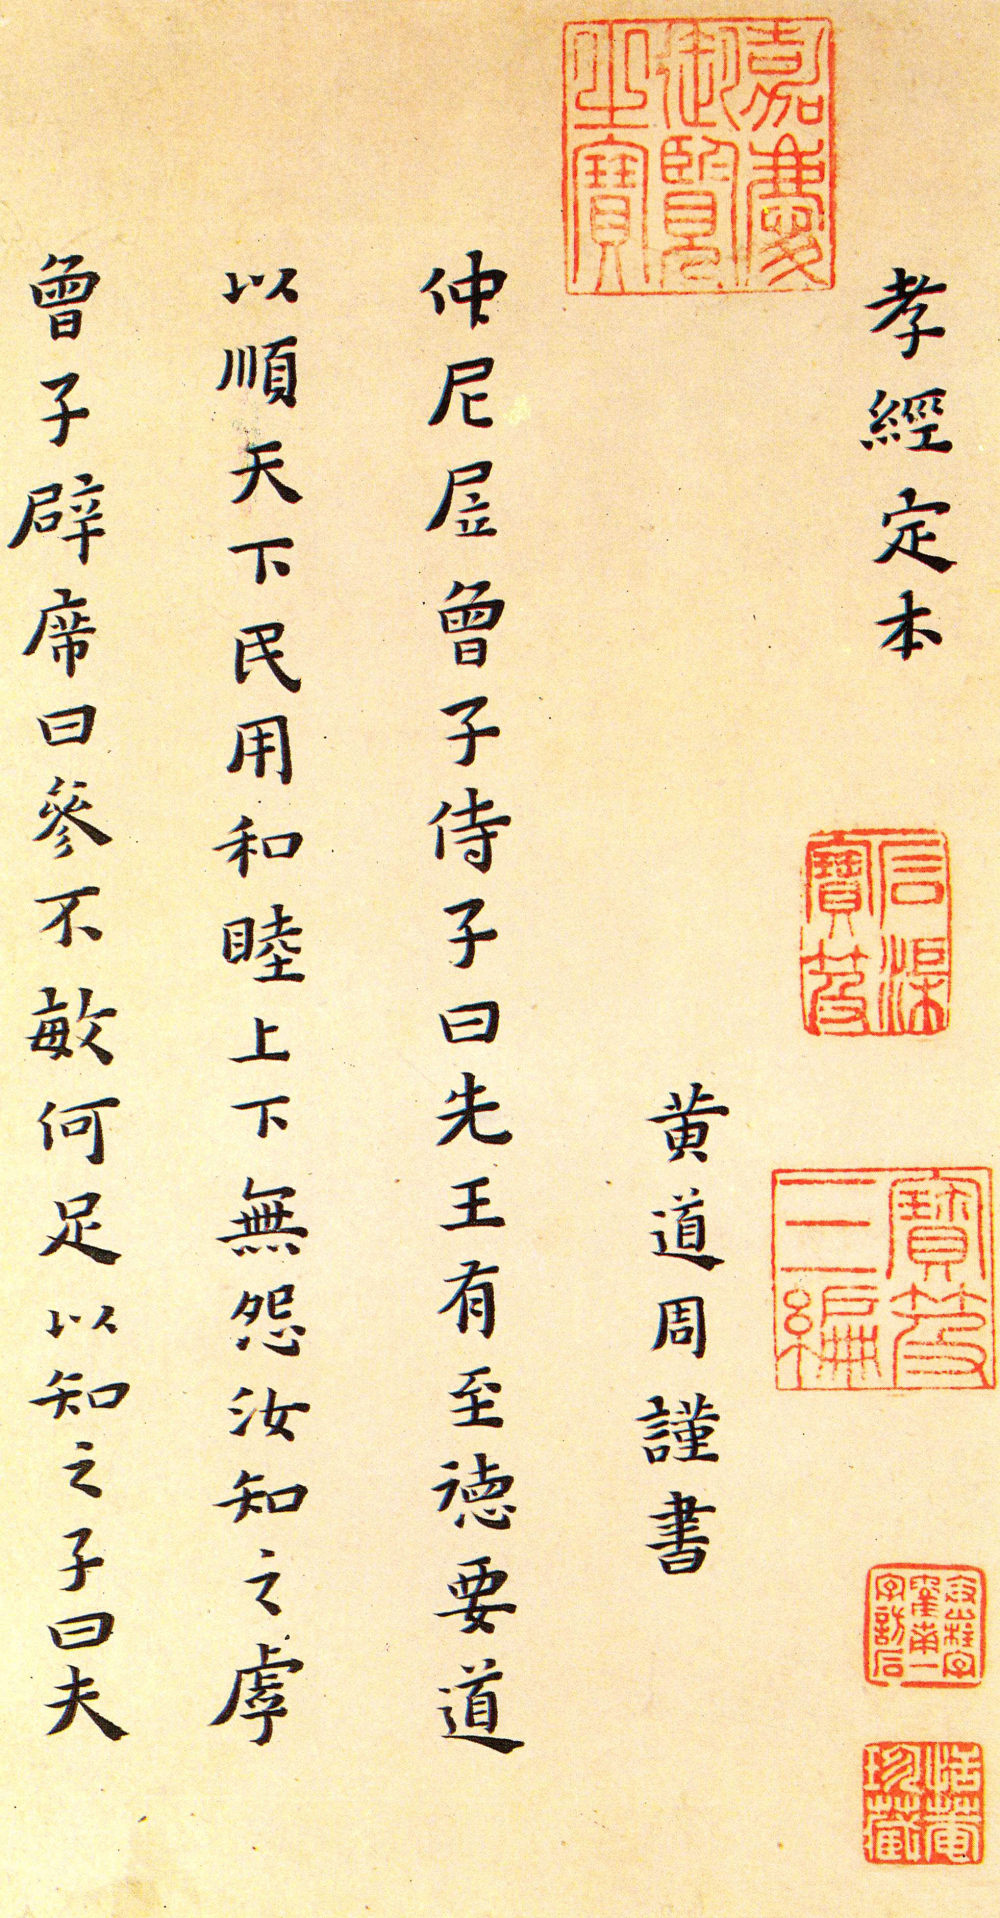 孝經定本
石渠寶笈
寶笈三編
恬菴珍藏
嘉慶御覽之寶
黃道周謹書
仲尼㞐曾子侍子曰先王有至德要道
以順天下民用和睦上下無怨汝知之虖
曾子辟席曰參不敏何足以知之子曰夫